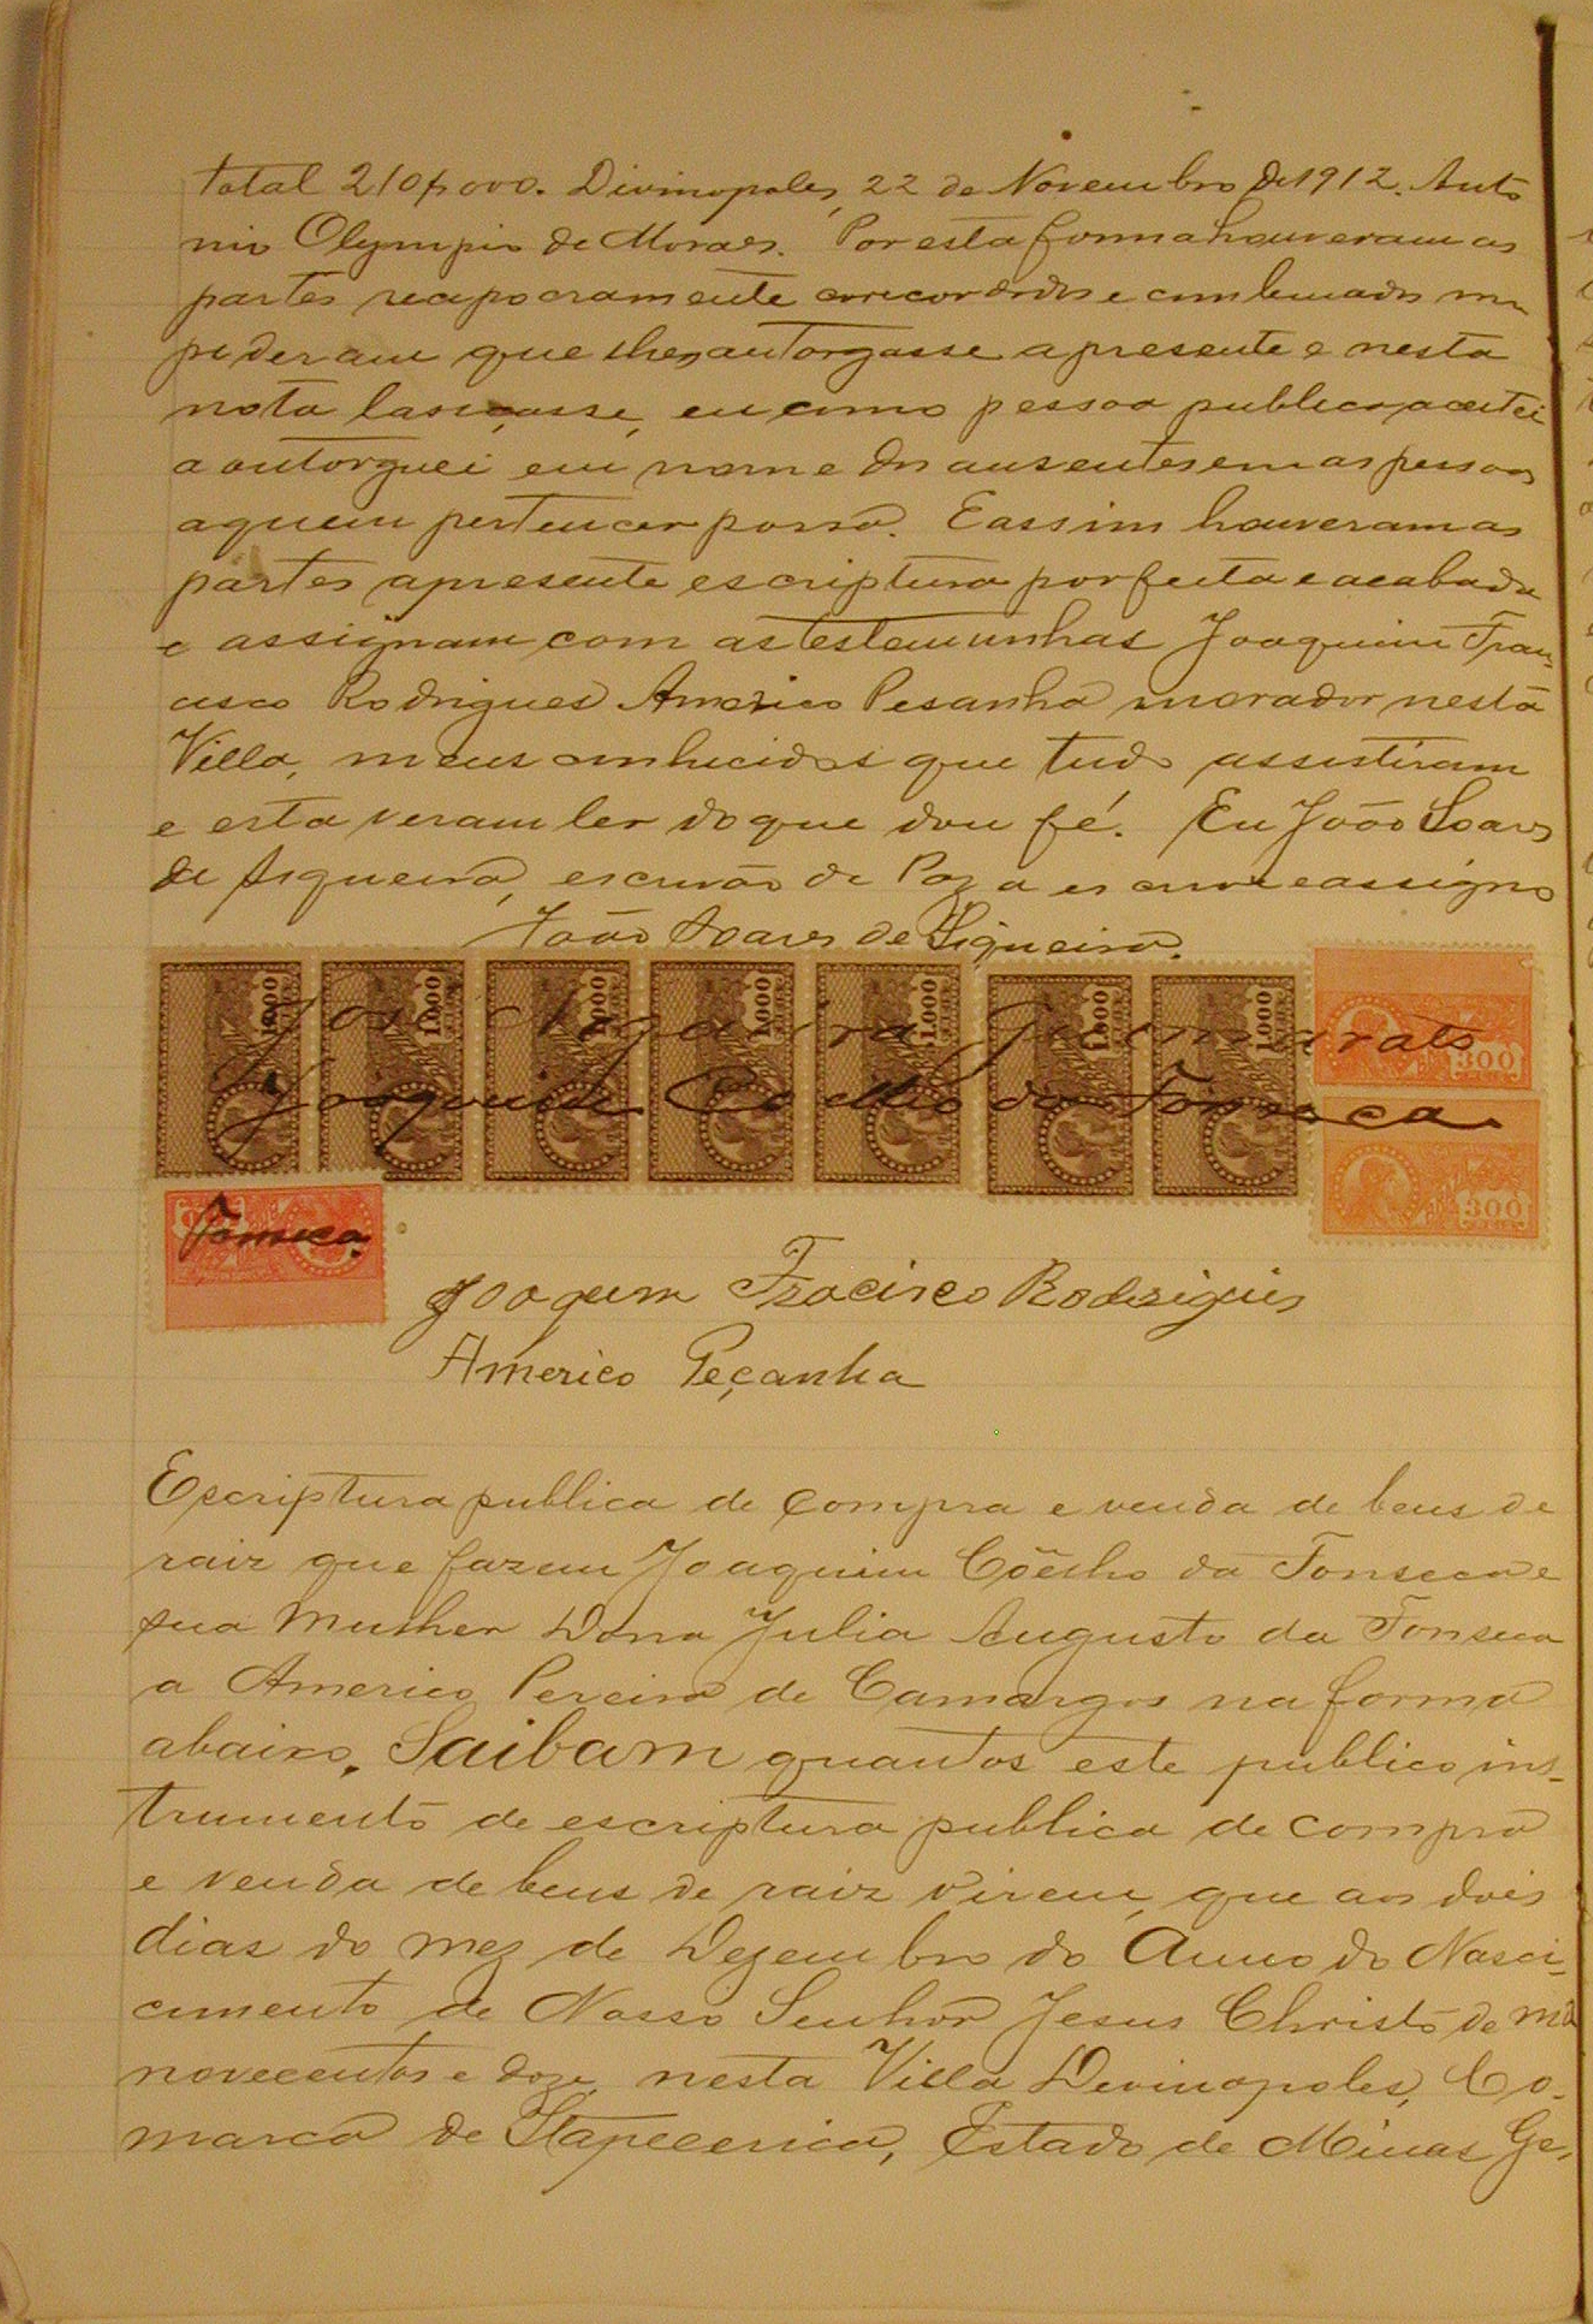 total 210$000. Divinopoles, 22 de Novembro de 1912. Anto
nio Olympio de Moraes. Por esta forma houveram as
partes recepocramente e combenados me
pederam que lhes autorgasse a presente e nesta
nota lascasse, eu como pessoa publica aceitei
a outorguei em nome dos ausentes em as pessoas
a quem pertencer possa. E assim houveram as
partes a presente escriptura porfeita e acabada
e assignam com as testemunhas Joaquim Fran-
cisco Rodrigues Americo Pesanha morador nesta
Villa, meus conhecidos que tudo assistiram
e esta veram ler do que dou fé. Eu João Soares
de Siqueira, escrivão de Paz a escrevi e assigno
João Soares de Siqueira.
1000 1000 1000 1000 1000 1000 1000
José Nogueira Guimarats
300
Joaquim Coelho da Fonseca
300
Fonseca
Joaquim Fracisco Rodrigues
Americo Peçanha
Escriptura publica de compra e venda de bens de
raiz que fazem Joaquim Coêlho da Fonseca e
sua Mulher Dona Julia Augusto da Fonseca
a Americo Pereira de Camargos na forma
abaixo. Saibam quantos este publico ins-
trumento de escriptura publica de compra
e venda de bens de raiz virem, que aos dois
dias do mez de Dezembro do Anno do Nasci-
cimento de Nosso Senhor Jesus Christo de mil
novecentos e doze, nesta Villa Devinopoles, Co-
marca de Itapecerica, Estado de Minas Ge-